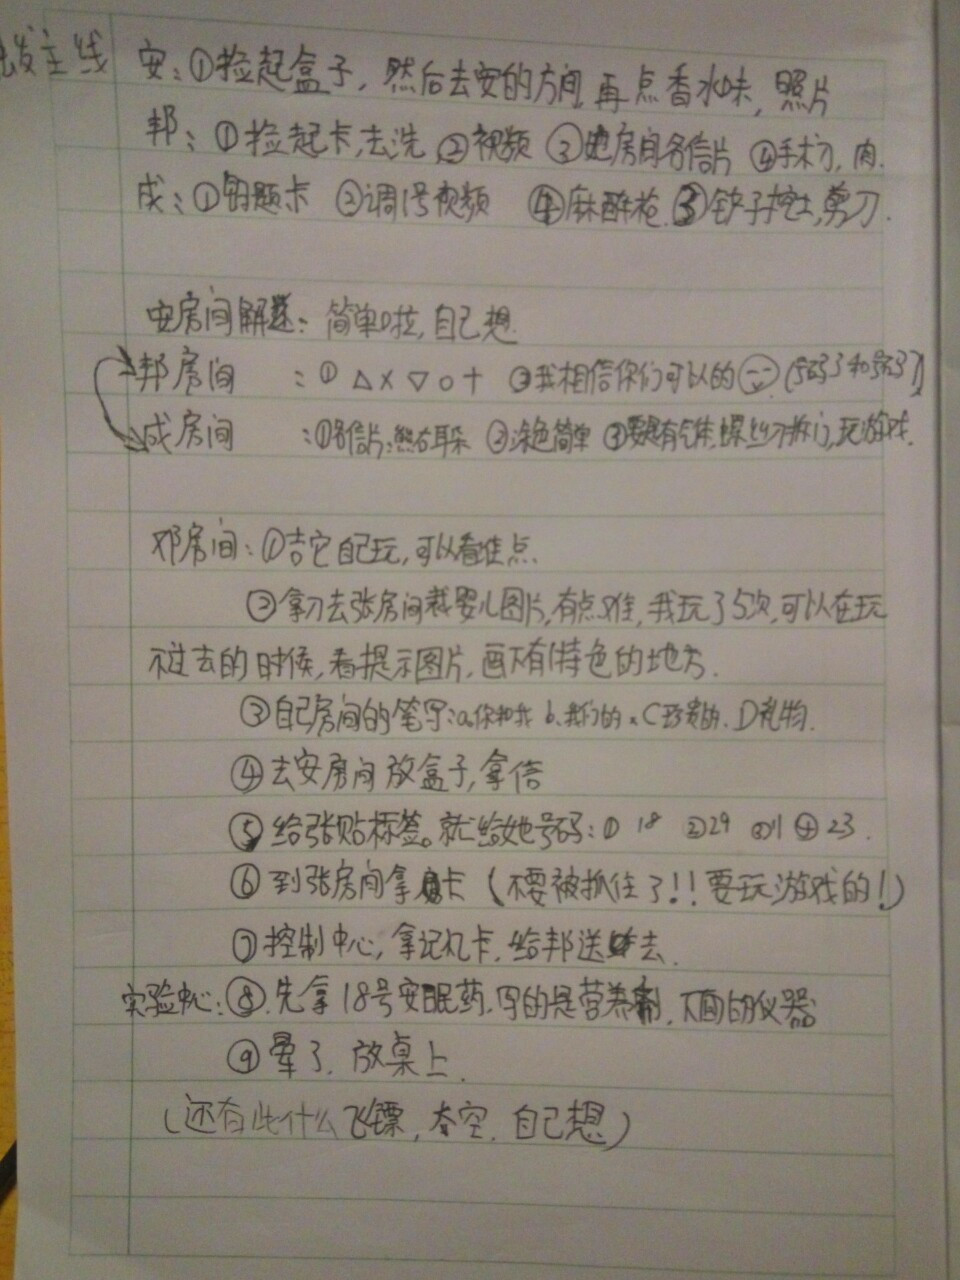 发主线 安:①捡起盒子,然后去安的方间再点香水味,照片
邦:①捡起卡,去洗 ②视频 ③她房间名信片 ④手术刀,肉.
成:①留题卡 ②调1号视频 ④麻醉花.③铲子挖土,剪刀.
安房间解迷:简单啦,自己想.
邦房间 :① △×▽○十 ②我相信你们可以的
成房间 :①名信片:熊右耳朵 ②涂色简单 ③要是有气体,螺丝刀拆门,玩游戏.
邓房间:①吉它自己玩,可以看焦点.
②拿刀去张房间裁婴儿图片,有点难,我玩了5次,可以在玩
不过去的时候,看提示图片,画不有特色的地方.
③自己房间的笔字:a.你和我 b.我们的.C珍贵的.D礼物.
④去安房间放盒子,拿信
⑤给张贴标签。就给她号码:① 18 ②29 ③11 ④23.
⑥到张房间拿卡(不要被抓住了!!要玩游戏的!)
⑦控制中心,拿记忆卡,给邦送去.
实验中心:⑧.先拿18号安眠药.写的是营养剂,下面的仪器
⑨晕了.放桌上.
(还有些什么飞镖,夺空.自己想)